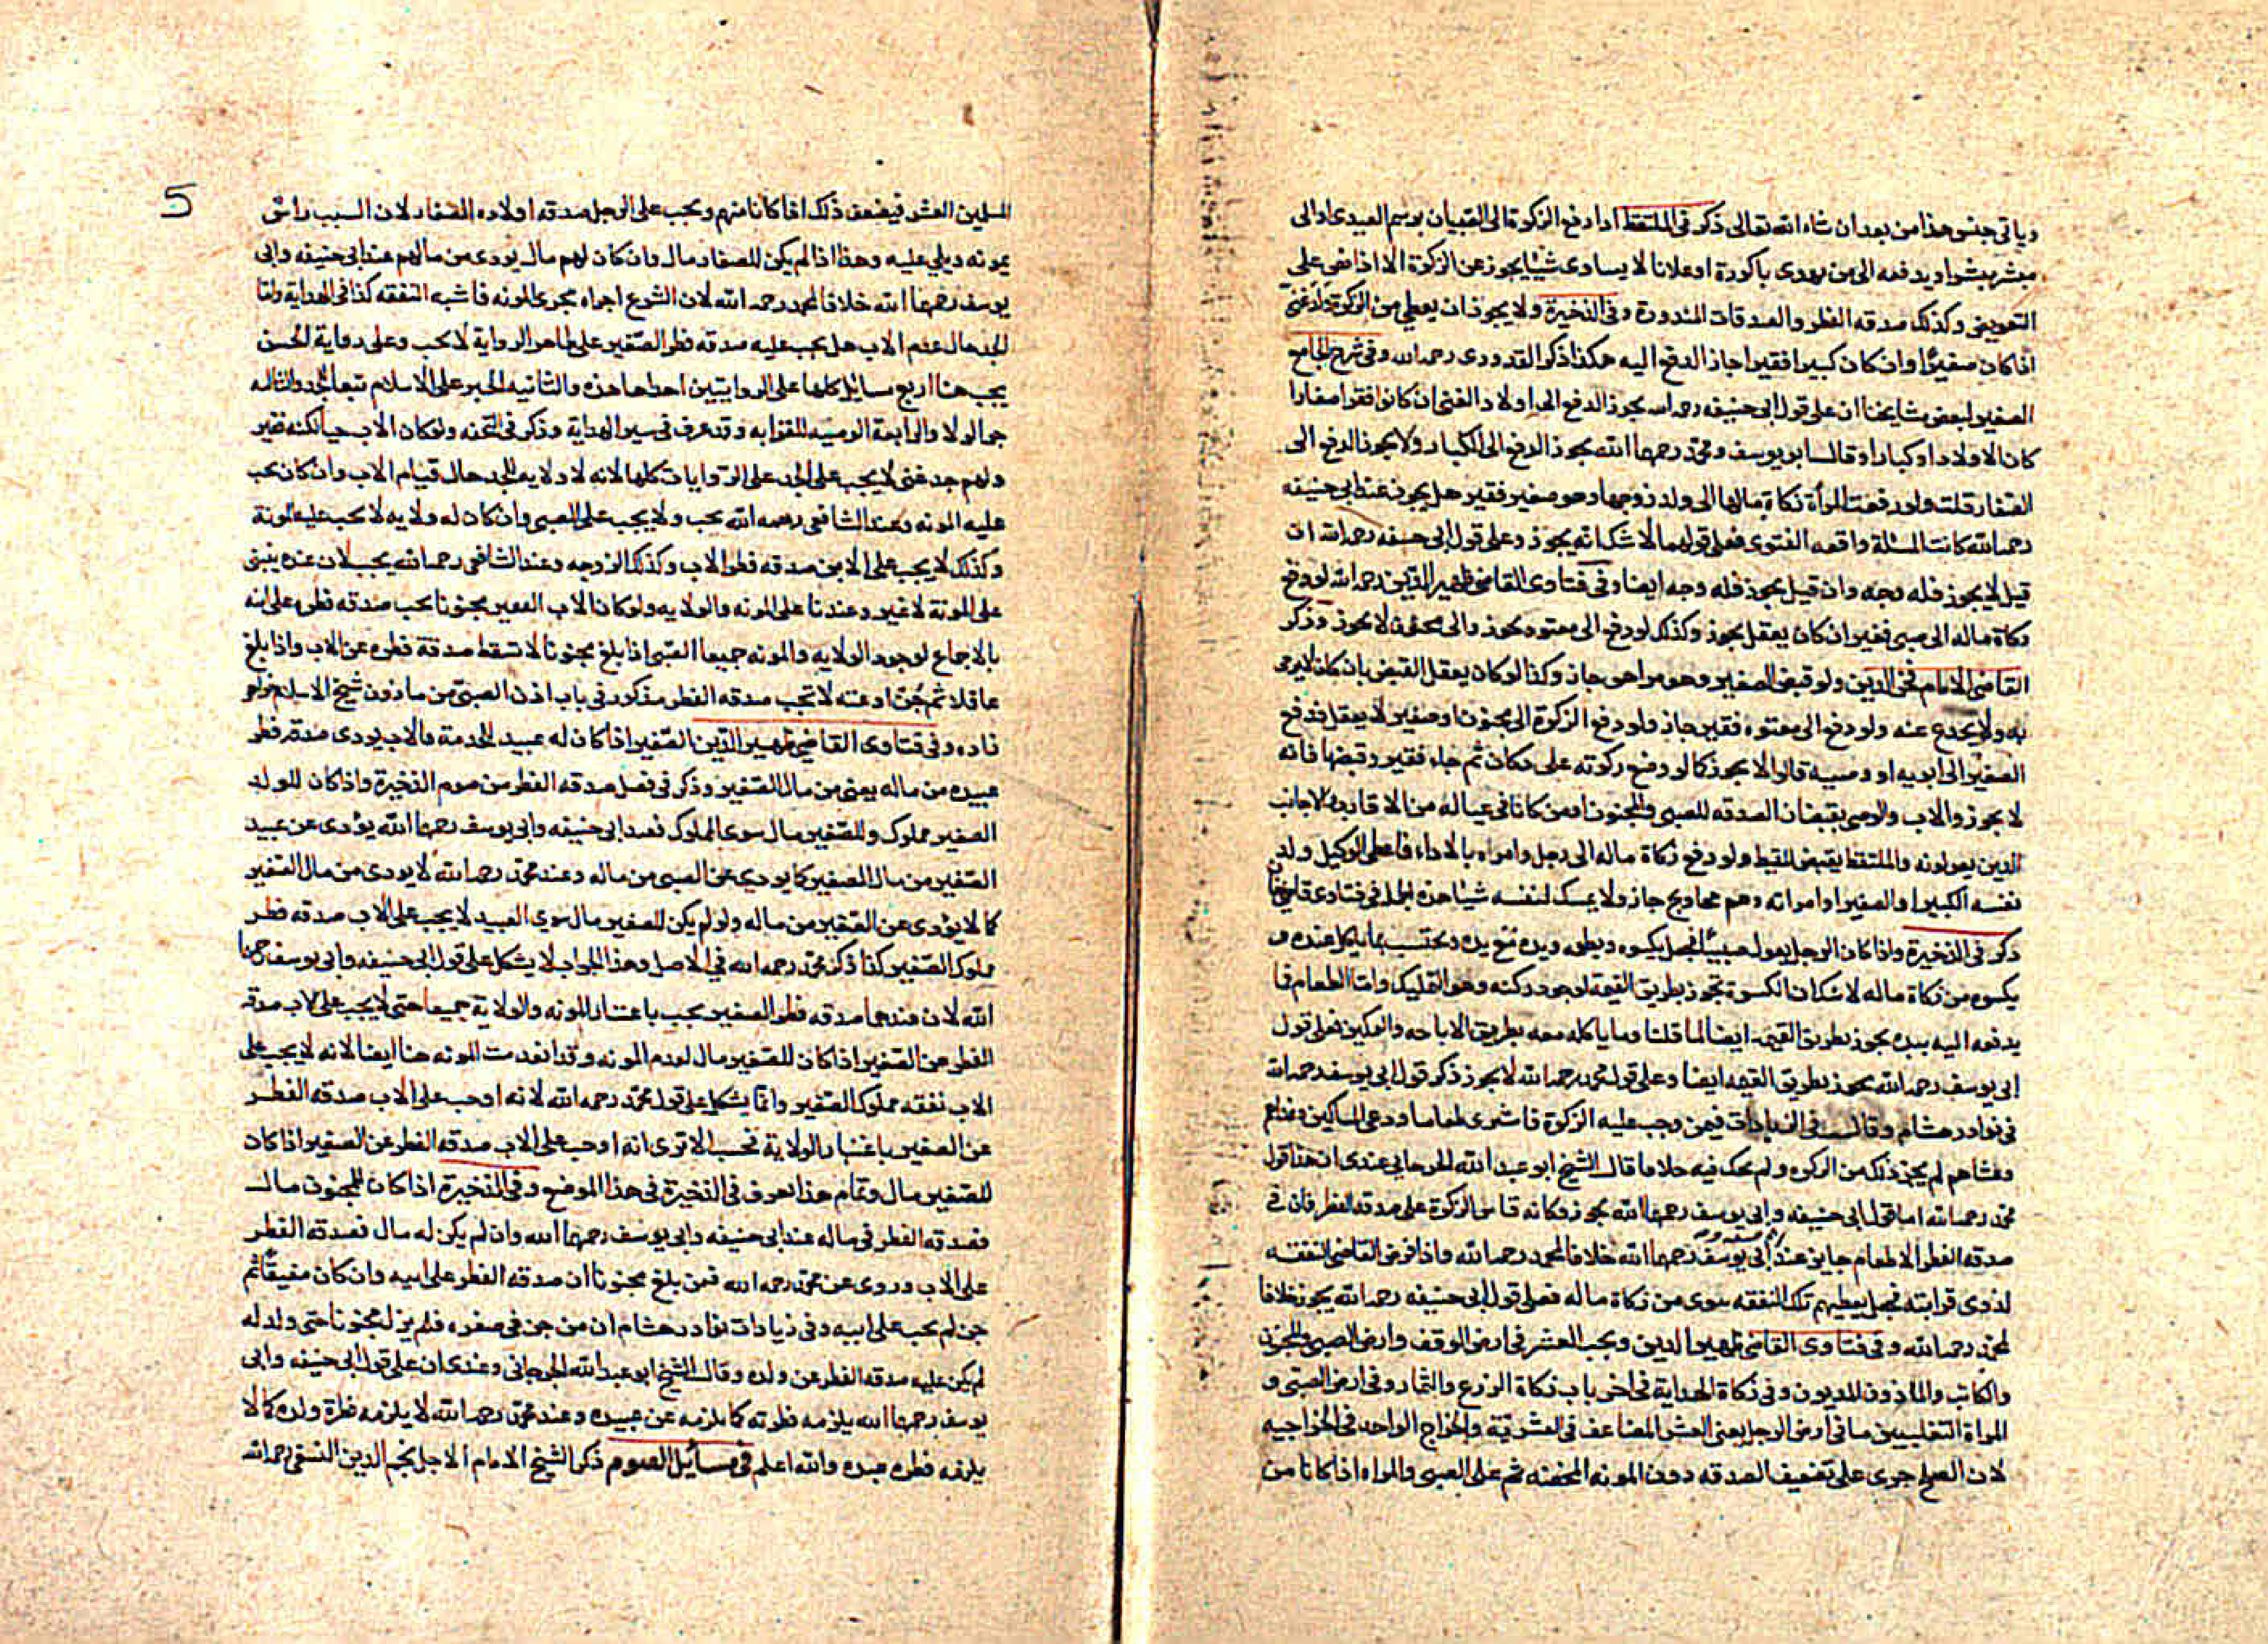 وياتي جنس هذا من بعد ان شاء الله تعالى ذكر فى الملتقط اذا دفع الزكوة الى الصبيان برسم العيدى او الى
مبشر يبشر او يدفعه الى من يهدى باكورة او علانا لا يساوى شيئا يجوز عن الزكوة الا اذا نص على
التعويض وكذلك صدقه الفطر والصدقات المنذورة وفى الذخيرة ولا يجوز ان يعطى من الزكوة ولد غنى
اذا كان صغيرا وان كان كبيرا فقيرا جاز الدفع اليه هكذا ذكر القدورى رحمه الله وفى شرح الجامع
الصغير لبعض مشايخنا ان على قول ابى حنيفه رحمه الله يجوز الدفع الى اولاد الغنى ان كانوا فقرا صغارا
كان الاولاد او كبارا وقال ابو يوسف ومحمد رحمهما الله يجوز الدفع الى الكبار ولا يجوز الدفع الى
الصغار قلت ولو دفعت المرأة زكاة مالها الى ولد زوجها وهو صغير فقير هل يجوز عند ابى حنيفه
رحمه الله كانت المسئلة واقعه الفتوى فعلى قولهما لا شك انه يجوز وعلى قول ابى حنيفه رحمه الله ان
قيل لا يجوز فله وجه وان قيل يجوز فله وجه ايضا وفى فتاوى القاضى ظهير الدين رحمه الله لو دفع
زكاة ماله الى صبى فقير ان كان يعقل يجوز وكذلك لو دفع الى معتوه يجوز والى مجنون لا يجوز وذكر
القاضى الامام فخر الدين ولو قبض الصغير وهو مراهق جاز وكذا لو كان يعقل القبض بان كان لا يرمى
به ولا يخدع عنه ولو دفع الى معتوه فقير جاز ولو دفع الزكوة الى مجنون او صغير لا يعقل فدفع
الصغير الى ابويه او وصيه قالوا لا يجوز كما لو وضع زكوته على دكان ثم جاء فقير وقبضها فانه
لا يجوز والاب والوصى يقبضان الصدقه للصبى والمجنون او من كانا فى عياله من الاقارب والاجانب
الذين يعولونه والملتقط يقبض للقيط ولو دفع زكاة ماله الى رجل وامره بالاداء فاعطى الوكيل ولد
نفسه الكبير او الصغير او امراته وهم محاويج جاز ولا يمسك لنفسه شيئا هذه الجمل فى فتاوى قاضيخان
ذكر فى الذخيرة واذا كان الرجل يعول صبيا فجعل يكسوه ويطعمه ويده مع يده ويحتسب بما ياكل عنده و
يكسوه من زكاة ماله لا شك ان الكسوة تجوز بطريق القيمة لوجود ركنه وهو التمليك واما الطعام فما
يدفعه اليه بيده يجوز بطريق القيمة ايضا لما قلنا وما ياكله معه بطريق الاباحه والتمكين فعلى قول
ابى يوسف رحمه الله يجوز بطريق القيمه ايضا وعلى قول محمد رحمه الله لا يجوز ذكر قول ابى يوسف رحمه الله
فى نوادر هشام وقال فى الزيادات فيمن وجب عليه الزكوة فاشترى طعاما ودعى المساكين وغداهم
وعشاهم لم يجز ذلك من الزكوه ولم يحك فيه خلافا قال الشيخ ابو عبد الله الجرجانى عندى ان هذا قول
محمد رحمه الله اما قول ابى حنيفه وابى يوسف رحمهما الله يجوز وكانه قاس الزكوة على صدقه الفطر فان فى
صدقه الفطر الاطعام جايز عند ابى يوسف رحمهما الله خلافا لمحمد رحمه الله واذا فرض القاضى النفقه
لذوى قرابته فجعل يعطيهم تلك النفقه ينوى من زكاة ماله فعلى قول ابى حنيفه رحمه الله يجوز خلافا
لمحمد رحمه الله وفى فتاوى القاضى ظهير الدين ويجب العشر فى ارض الوقف وارض الصبى والمجنون
والمكاتب والماذون المديون وفى زكاة الهداية فى اخر باب زكاة الزرع والثمار وفى ارض الصبى و
المراة التغلبيين ما فى ارض الرجل يعنى العشر المضاعف فى العشرية والخراج الواحد فى الخراجيه
لان الصلح جرى على تضعيف الصدقه دون المونه المحضه ثم على الصبى والمراه اذا كانا من
5
المسلمين العشر فيضعف ذلك اذا كانا منهم ويجب على الرجل صدقه اولاده الصغار لان السبب راس
يمونه ويلى عليه وهذا اذا لم يكن للصغار مال وان كان لهم مال يودى من مالهم عند ابى حنيفه وابى
يوسف رحمهما الله خلافا لمحمد رحمه الله لان الشرع اجراه مجرى المونه فاشبه النفقه كذا فى الهداية واما
الجد حال عدم الاب هل يجب عليه صدقه فطر الصغير على ظاهر الرواية لا يجب وعلى رواية الحسن
يجب هنا اربع مسائل كلها على الروايتين احداها هذه والثانيه الجبر على الاسلام تبعا للجد والثالثه
جر الولا والرابعة الوصيه للقرابه وقد عرف فى سير الهداية وذكر فى التحفه ولو كان الاب حيا لكنه فقير
ولهم جد غنى لا يجب على الجد على الروايات كلها لانه لا ولايه للجد حال قيام الاب وان كان يجب
عليه المونه وعند الشافعى رحمه الله يجب ولا يجب على الصبى وان كان له ولايه لا يجب عليه المونة
وكذلك لا يجب على الابن صدقه فطر الاب وكذلك الزوجه وعند الشافعى رحمه الله يجب لان عنده يبنى
على المونة لا غير وعندنا على المونه والولايه ولو كان الاب الفقير مجنونا يجب صدقه فطره على ابنه
بالاجماع لوجود الولايه والمونه جميعا الصبى اذا بلغ مجنونا لا تسقط صدقة فطره عن الاب واذا بلغ
عاقلا ثم جن او عته لا تجب صدقه الفطر مذكور فى باب اذن الصبى من ماذون شيخ الاسلام خواهر
زاده وفى فتاوى القاضى ظهير الدين الصغير اذا كان له عبيد للخدمة والاب يودى صدقة فطر
عبيده من ماله يعنى من مال الصغير وذكر فى فصل صدقه الفطر من صوم الذخيرة واذا كان للولد
الصغير مملوك وللصغير مال سوى المملوك فعند ابى حنيفه وابى يوسف رحمهما الله يؤدى عن عبيد
الصغير من مال الصغير كما يودى عن الصبى من ماله وعند محمد رحمه الله لا يودى من مال الصغير
كما لا يؤدى عن الصغير من ماله ولو لم يكن للصغير مال سوى العبيد لا يجب على الاب صدقه فطر
مملوك الصغير كذا ذكر محمد رحمه الله فى الاصل وهذا الجواب لا يشكل على قول ابى حنيفه وابى يوسف رحمهما
الله لان عندهما صدقه فطر الصغير يجب باعتبار المونه والولاية جميعا حتى لا يجب على الاب صدقه
الفطر عن الصغير اذا كان للصغير مال لعدم المونه وقد انعدمت المونه هنا ايضا لانه لا يجب على
الاب نفقه مملوك الصغير وانما يشكل على قول محمد رحمه الله لانه اوجب على الاب صدقه الفطر
عن الصغير باعتبار الولاية فحسب الا ترى انه اوجب على الاب صدقه الفطر عن الصغير اذا كان
للصغير مال وتمام هذا يعرف فى الذخيرة فى هذا الموضع وفى الذخيرة اذا كان للمجنون مال
فصدقه الفطر فى ماله عند ابى حنيفه وابى يوسف رحمهما الله وان لم يكن له مال فصدقه الفطر
على الاب وروى عن محمد رحمه الله فمن بلغ مجنونا ان صدقه الفطر على ابيه وان كان مفيقا ثم
جن لم يجب على ابيه وفى زيادات نوادر هشام ان من جن فى صغره فلم يزل مجنونا حتى ولد له
لم يكن عليه صدقه الفطر عن ولده وقال الشيخ ابو عبد الله الجرجانى وعندى ان على قول ابى حنيفه وابى
يوسف رحمهما الله يلزمه فطرته كما يلزمه عن عبيده وعند محمد رحمه الله لا يلزمه فطرة ولده كما لا
يلزمه فطره عبده والله اعلم فى مسائل الصوم ذكر الشيخ الامام الاجل نجم الدين النسفى رحمه الله